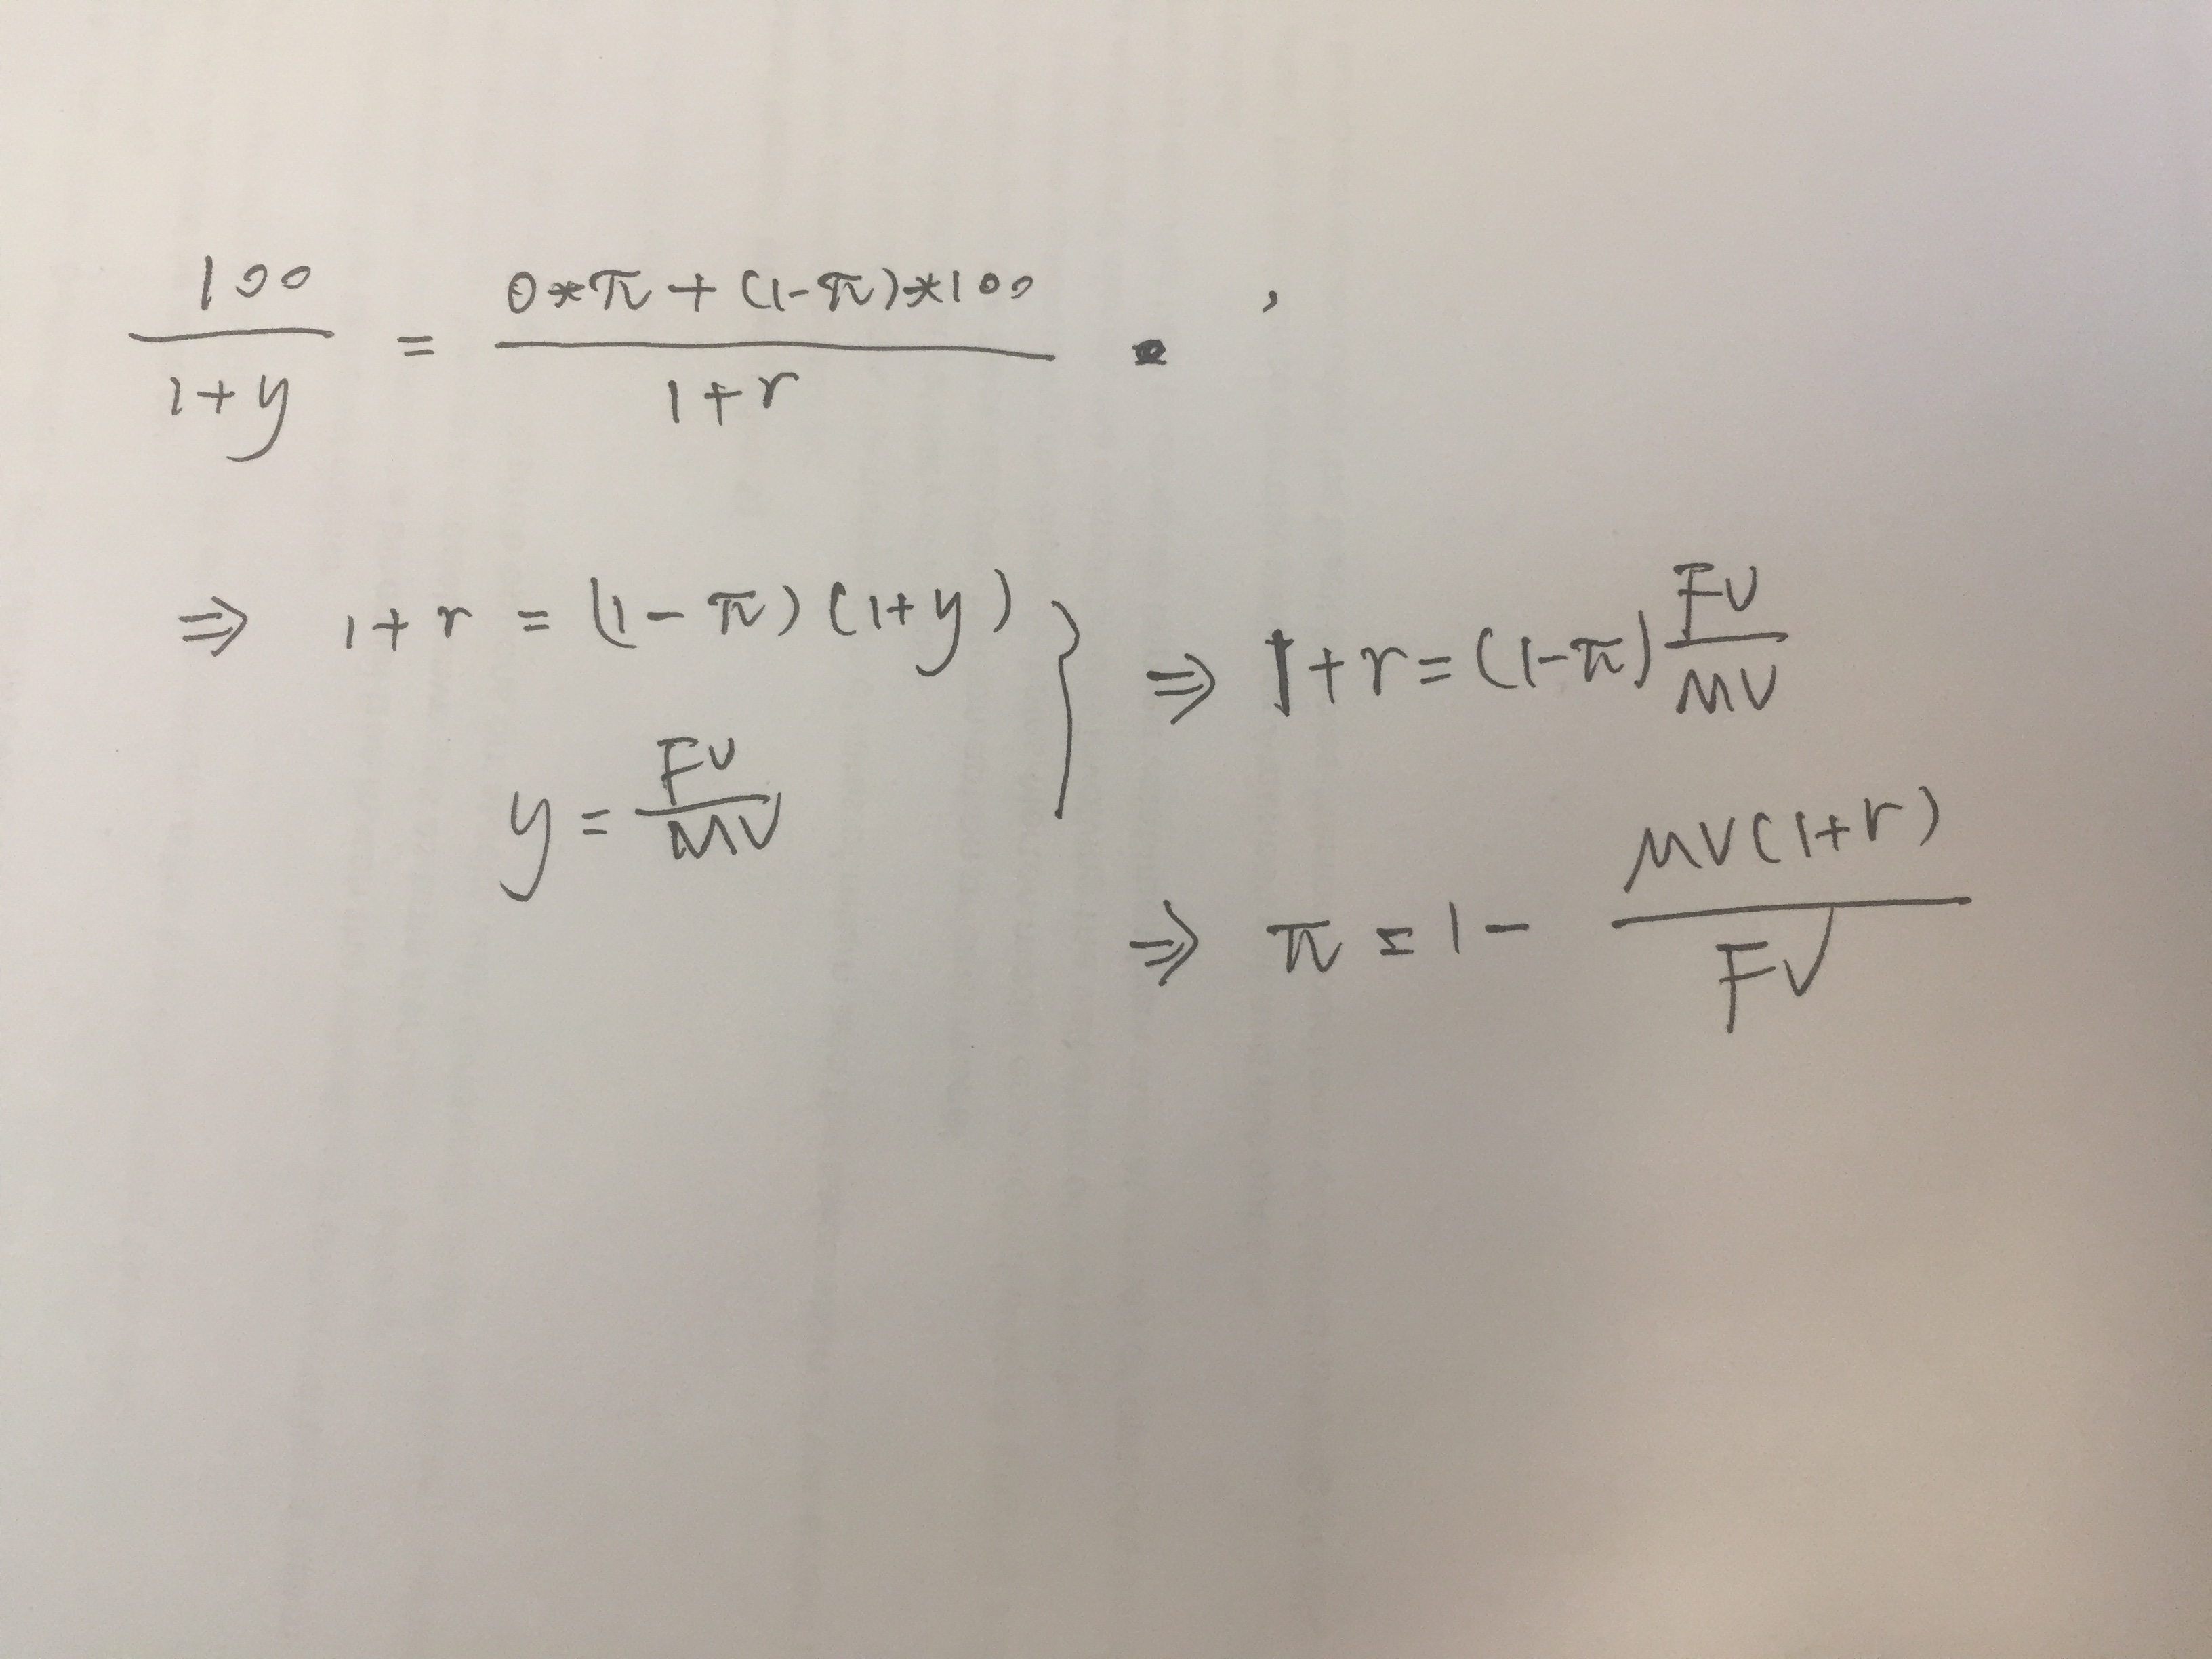 100/(1+y) = (0*π + (1-π)*100)/(1+r) ,
⇒ 1+r = (1-π)(1+y)
y = FV/MV
} ⇒ 1+r = (1-π) FV/MV
⇒ π = 1 - MV(1+r)/FV